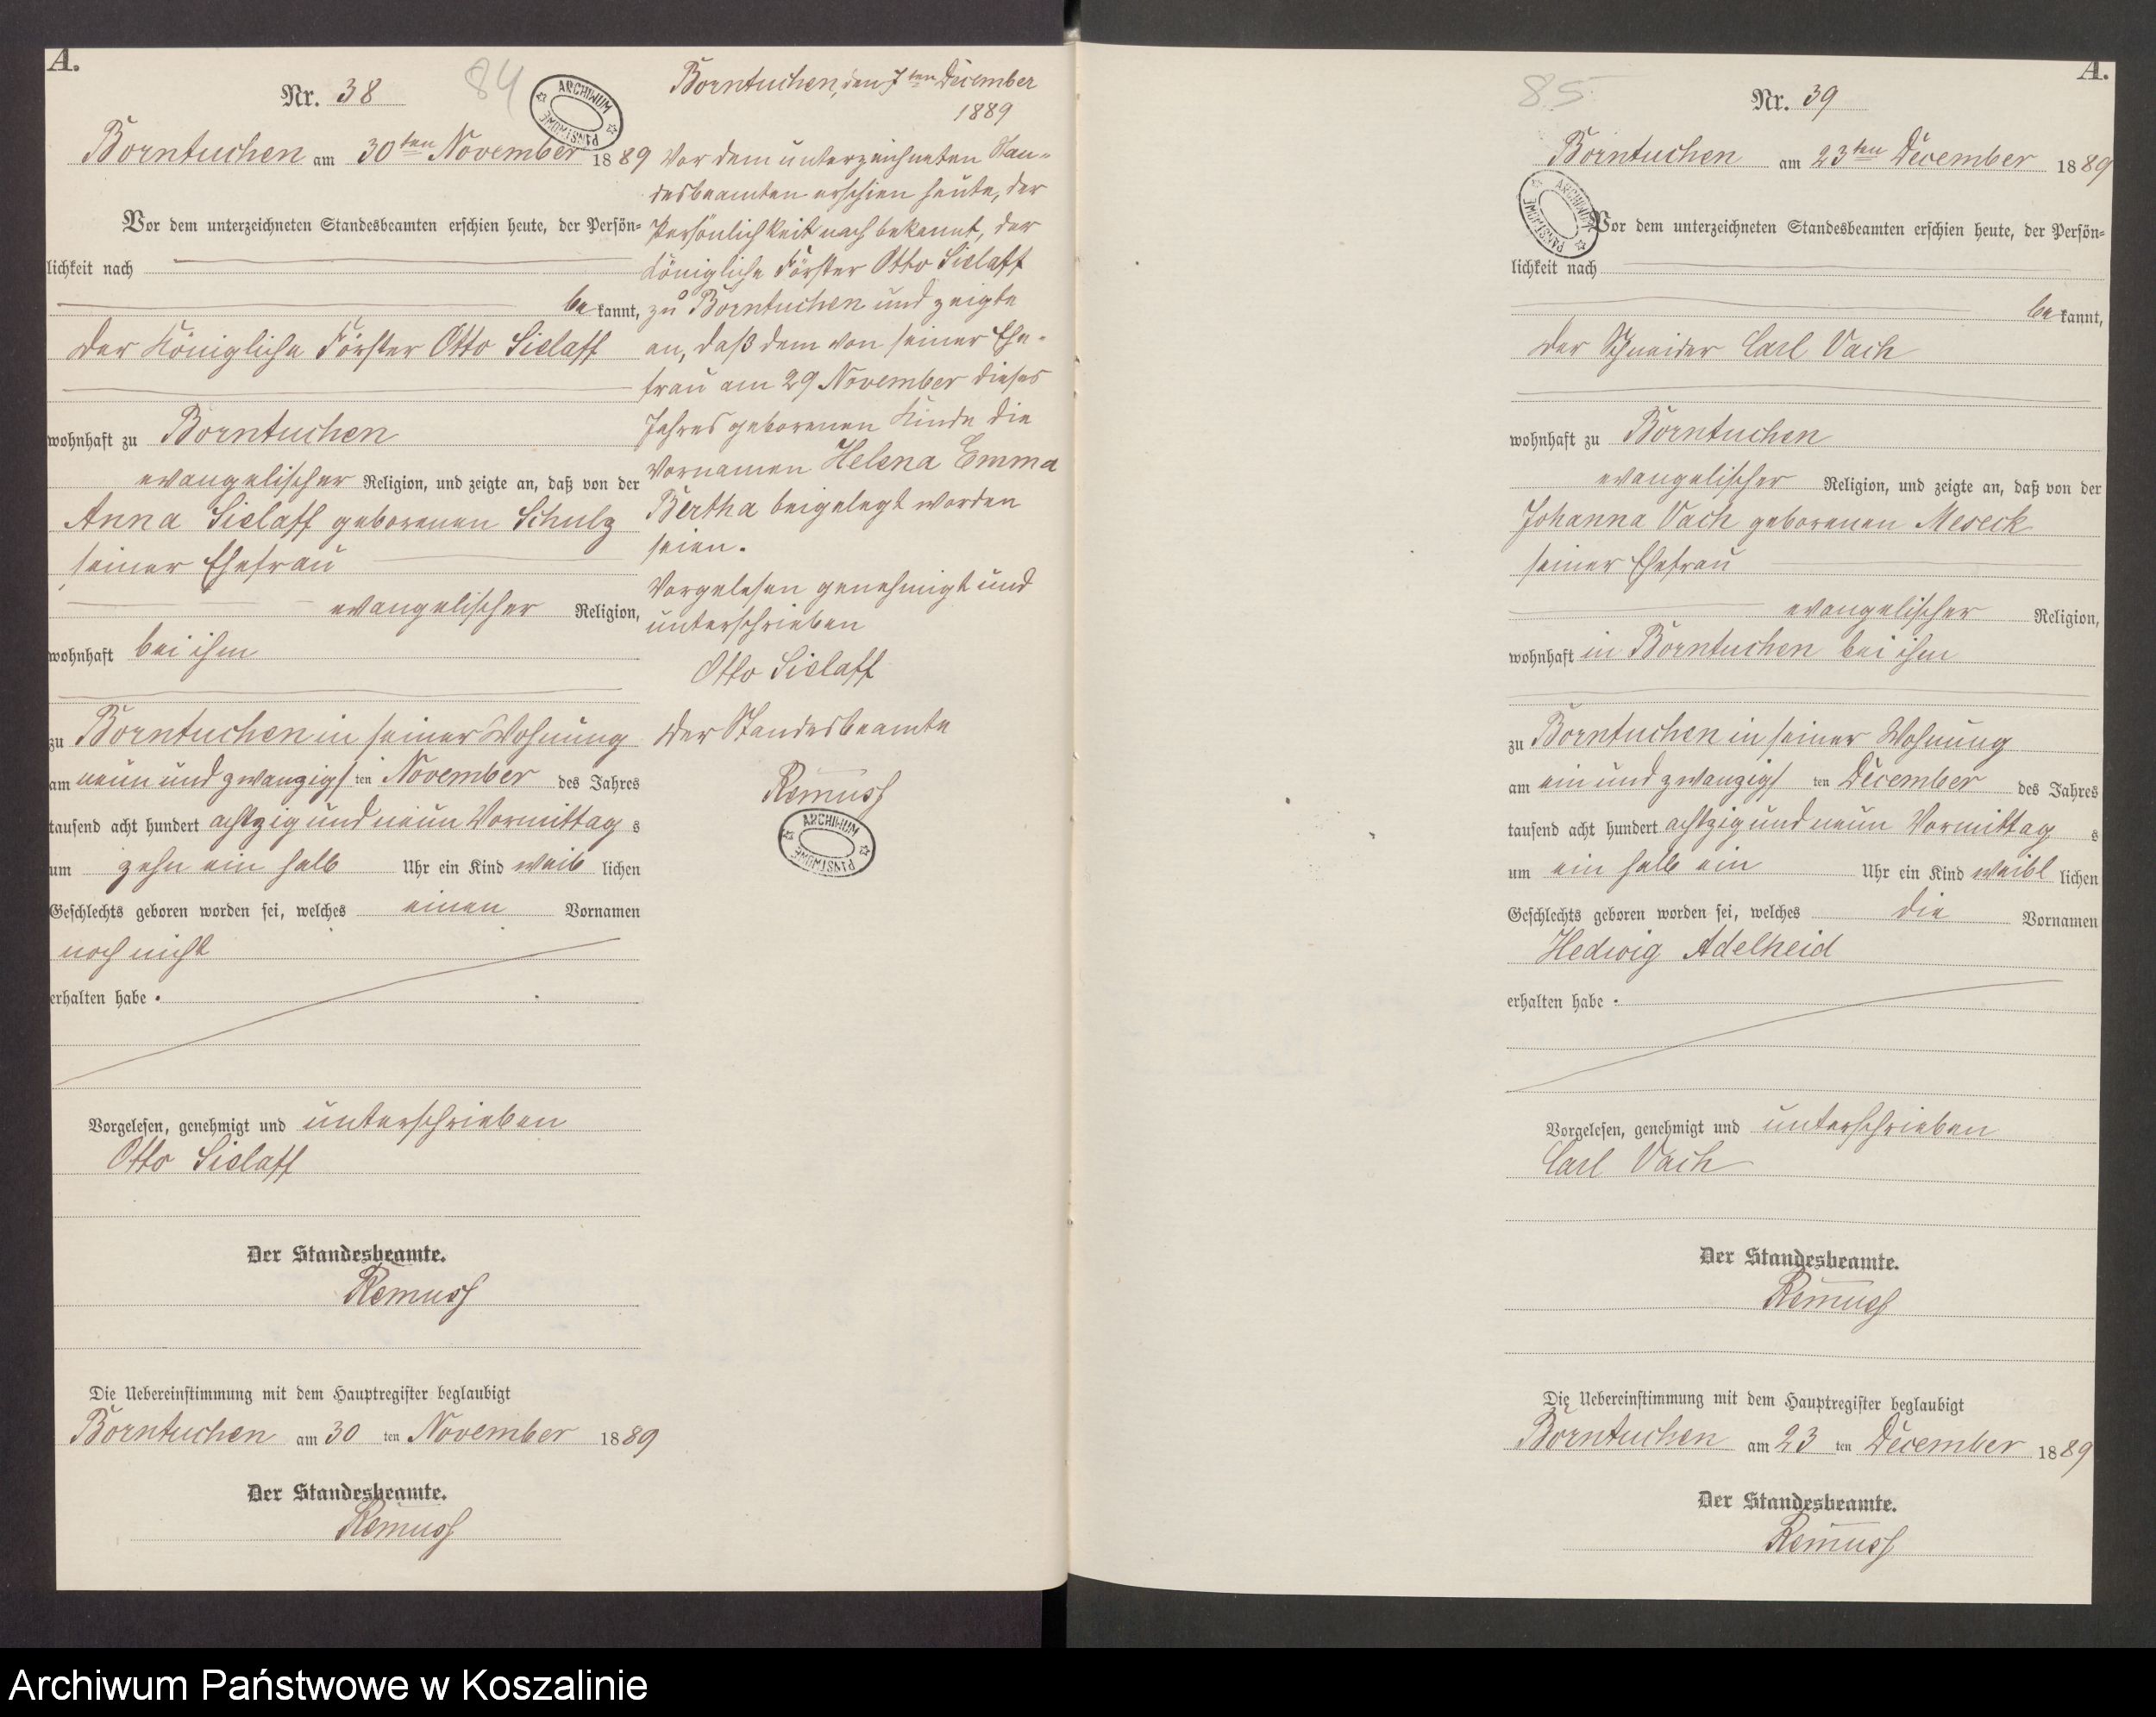 A.
Nr. 38
84
ARCHIWUM PAŃSTWOWE
Borntuchen am 30ten November 1889
Vor dem unterzeichneten Standesbeamten erschien heute, der Persön-
lichkeit nach
be kannt,
der Königliche Förster Otto Sielaff
wohnhaft zu Borntuchen
evangelischer Religion, und zeigte an, daß von der
Anna Sielaff geborenen Schulz
seiner Ehefrau
evangelischer Religion,
wohnhaft bei ihm
zu Borntuchen in seiner Wohnung
am neun und zwanzigs ten November des Jahres
tausend acht hundert achtzig und neun Vormittag s
um zehn ein halb Uhr ein Kind weib lichen
Geschlechts geboren worden sei, welches einen Vornamen
noch nicht
erhalten habe.
Vorgelesen, genehmigt und unterschrieben
Otto Sielaff
Der Standesbeamte.
Remuss
Die Uebereinstimmung mit dem Hauptregister beglaubigt
Borntuchen am 30 ten November 1889
Der Standesbeamte.
Remuss
Borntuchen, den 7ten December
1889
Vor dem unterzeichneten Stan-
desbeamten erschien heute, der
Persönlichkeit nach bekannt, der
Königliche Förster Otto Sielaff
zu Borntuchen und zeigte
an, daß dem von seiner Ehe-
frau am 29 November dieses
Jahres geborenen Kinde die
Vornamen Helena Emma
Bertha beigelegt worden
seien.
Vorgelesen genehmigt und
unterschrieben
Otto Sielaff
Der Standesbeamte
Remuss
ARCHIWUM PAŃSTWOWE
A.
85
Nr. 39
Borntuchen am 23ten December 1889
ARCHIWUM PAŃSTWOWE
Vor dem unterzeichneten Standesbeamten erschien heute, der Persön-
lichkeit nach
be kannt,
der Schneider Carl Vach
wohnhaft zu Borntuchen
evangelischer Religion, und zeigte an, daß von der
Johanna Vach geborenen Meseck
seiner Ehefrau
evangelischer Religion,
wohnhaft in Borntuchen bei ihm
zu Borntuchen in seiner Wohnung
am ein und zwanzigs ten December des Jahres
tausend acht hundert achtzig und neun Vormittag s
um ein halb ein Uhr ein Kind weibl lichen
Geschlechts geboren worden sei, welches die Vornamen
Hedwig Adelheid
erhalten habe.
Vorgelesen, genehmigt und unterschrieben
Carl Vach
Der Standesbeamte.
Remuss
Die Uebereinstimmung mit dem Hauptregister beglaubigt
Borntuchen am 23 ten December 1889
Der Standesbeamte.
Remuss
Archiwum Państwowe w Koszalinie